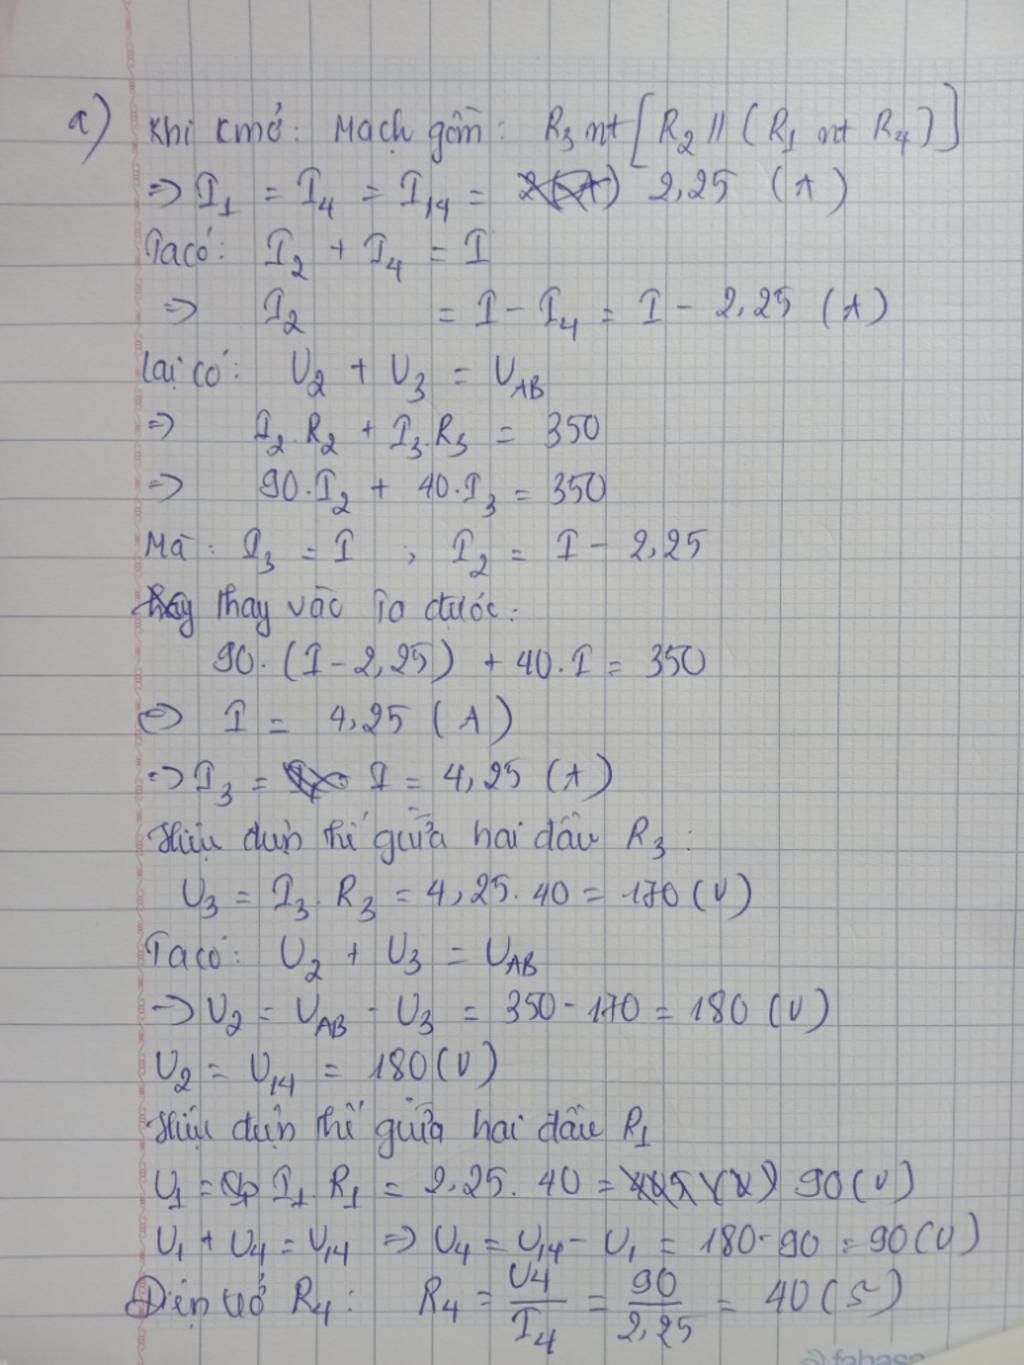 a) Khi K mở: Mạch gồm: R3 nt [R2 // (R1 nt R4)]
=> I1 = I4 = I14 = 2,25 (A)
Ta có: I2 + I4 = I
=> I2 = I - I4 = I - 2,25 (A)
Lại có: U2 + U3 = UAB
=> I2.R2 + I3.R3 = 350
=> 90.I2 + 40.I3 = 350
Mà: I3 = I ; I2 = I - 2,25
Thay vào ta được:
90.(I - 2,25) + 40.I = 350
<=> I = 4,25 (A)
=> I3 = I = 4,25 (A)
Hiệu điện thế giữa hai đầu R3:
U3 = I3.R3 = 4,25.40 = 170 (V)
Ta có: U2 + U3 = UAB
-> U2 = UAB - U3 = 350 - 170 = 180 (V)
U2 = U14 = 180 (V)
Hiệu điện thế giữa hai đầu R1
U1 = I1.R1 = 2,25.40 = 90 (V)
U1 + U4 = U14 => U4 = U14 - U1 = 180 - 90 = 90 (V)
Điện trở R4: R4 = U4/I4 = 90/2,25 = 40 (Ω)
fahasa